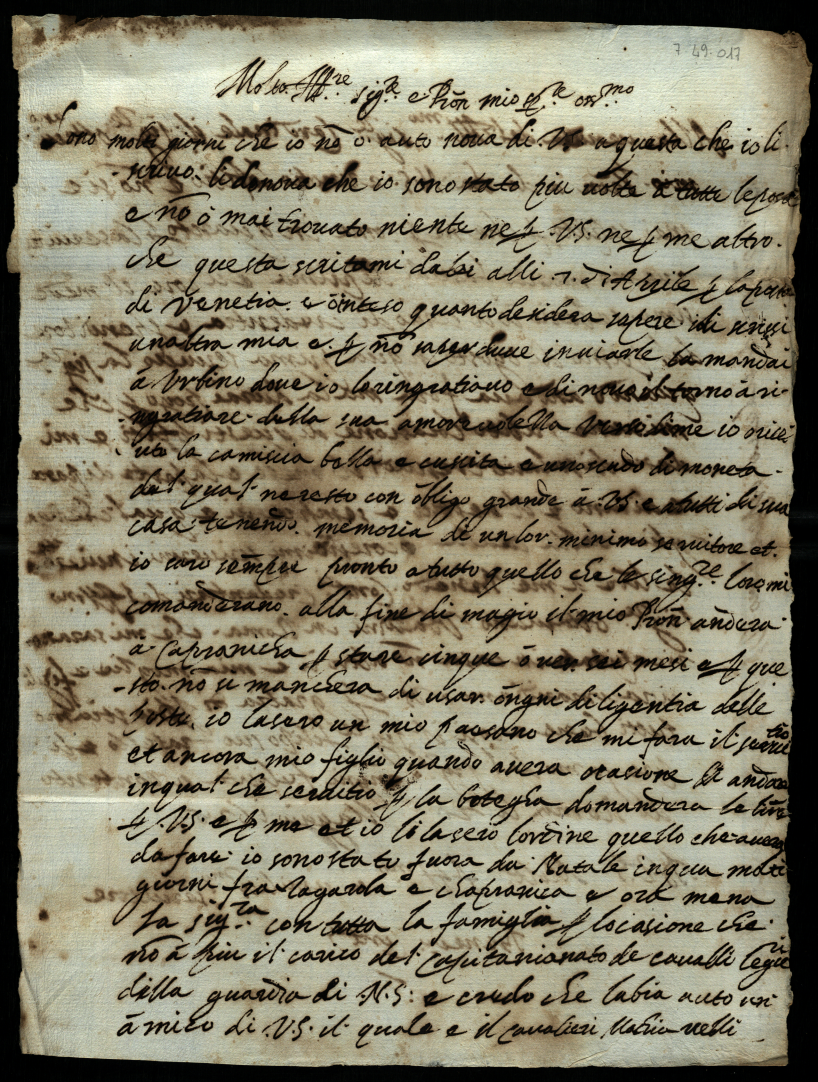 7 49.017
Molto Ill.re sig.re e Prōn mio ... oss.mo
Sono molti giorni che io nō o auto nova di V.S. a questa che io li
scrivo. li do nova che io sono stato piu volte a tutte le poste
e nō o mai trovato niente ne p V.S. ne p me altro.
che questa scritami da lei alli 7. di Aprile p la posta
di Venetia. e ō inteso quanto desidera sapere idi scrissi
unaltra mia e. p nō saper dove inviarle la mandai
a Urbino dove io lo ringratiavo e di novo il torno a ri-
ngratiare della sua amorevolezza verso di me io o rice-
uto la camiscia bella e cuscita e uno scudo di moneta
del qual ne resto con obligo grande a V.S. e a tutti di sua
casa tenendo. memoria de un lor. minimo servitore et.
io saro sempre pronto a tutto quello che le sing.re loro mi
comanderano. alla fine di magio il mio Prōn andera
a Capranicha p stare cinque o ver sei mesi e p que
sto. nō si manchera di usar ongni diligentia delle
poste. io lasero un mio paesano che mi fara il servitio
et ancora mio figlio quando avera ocasione di andare
in qual che servitio p la botegha domandera le littre
p V.S. e p me et io li lasero lordine quello che avera
da fare. io sono stato fuora da Natale in qua molti
giorni fra Zagarola e chapranica e ora mena
la sig.ra con tutta la famiglia p locasione che
nō a piu il carico del capitanianato de cavalli legieri
della guardia di N.S. e credo che labia auto un
amico di V.S. il quale e il cavalieri Machiavelli